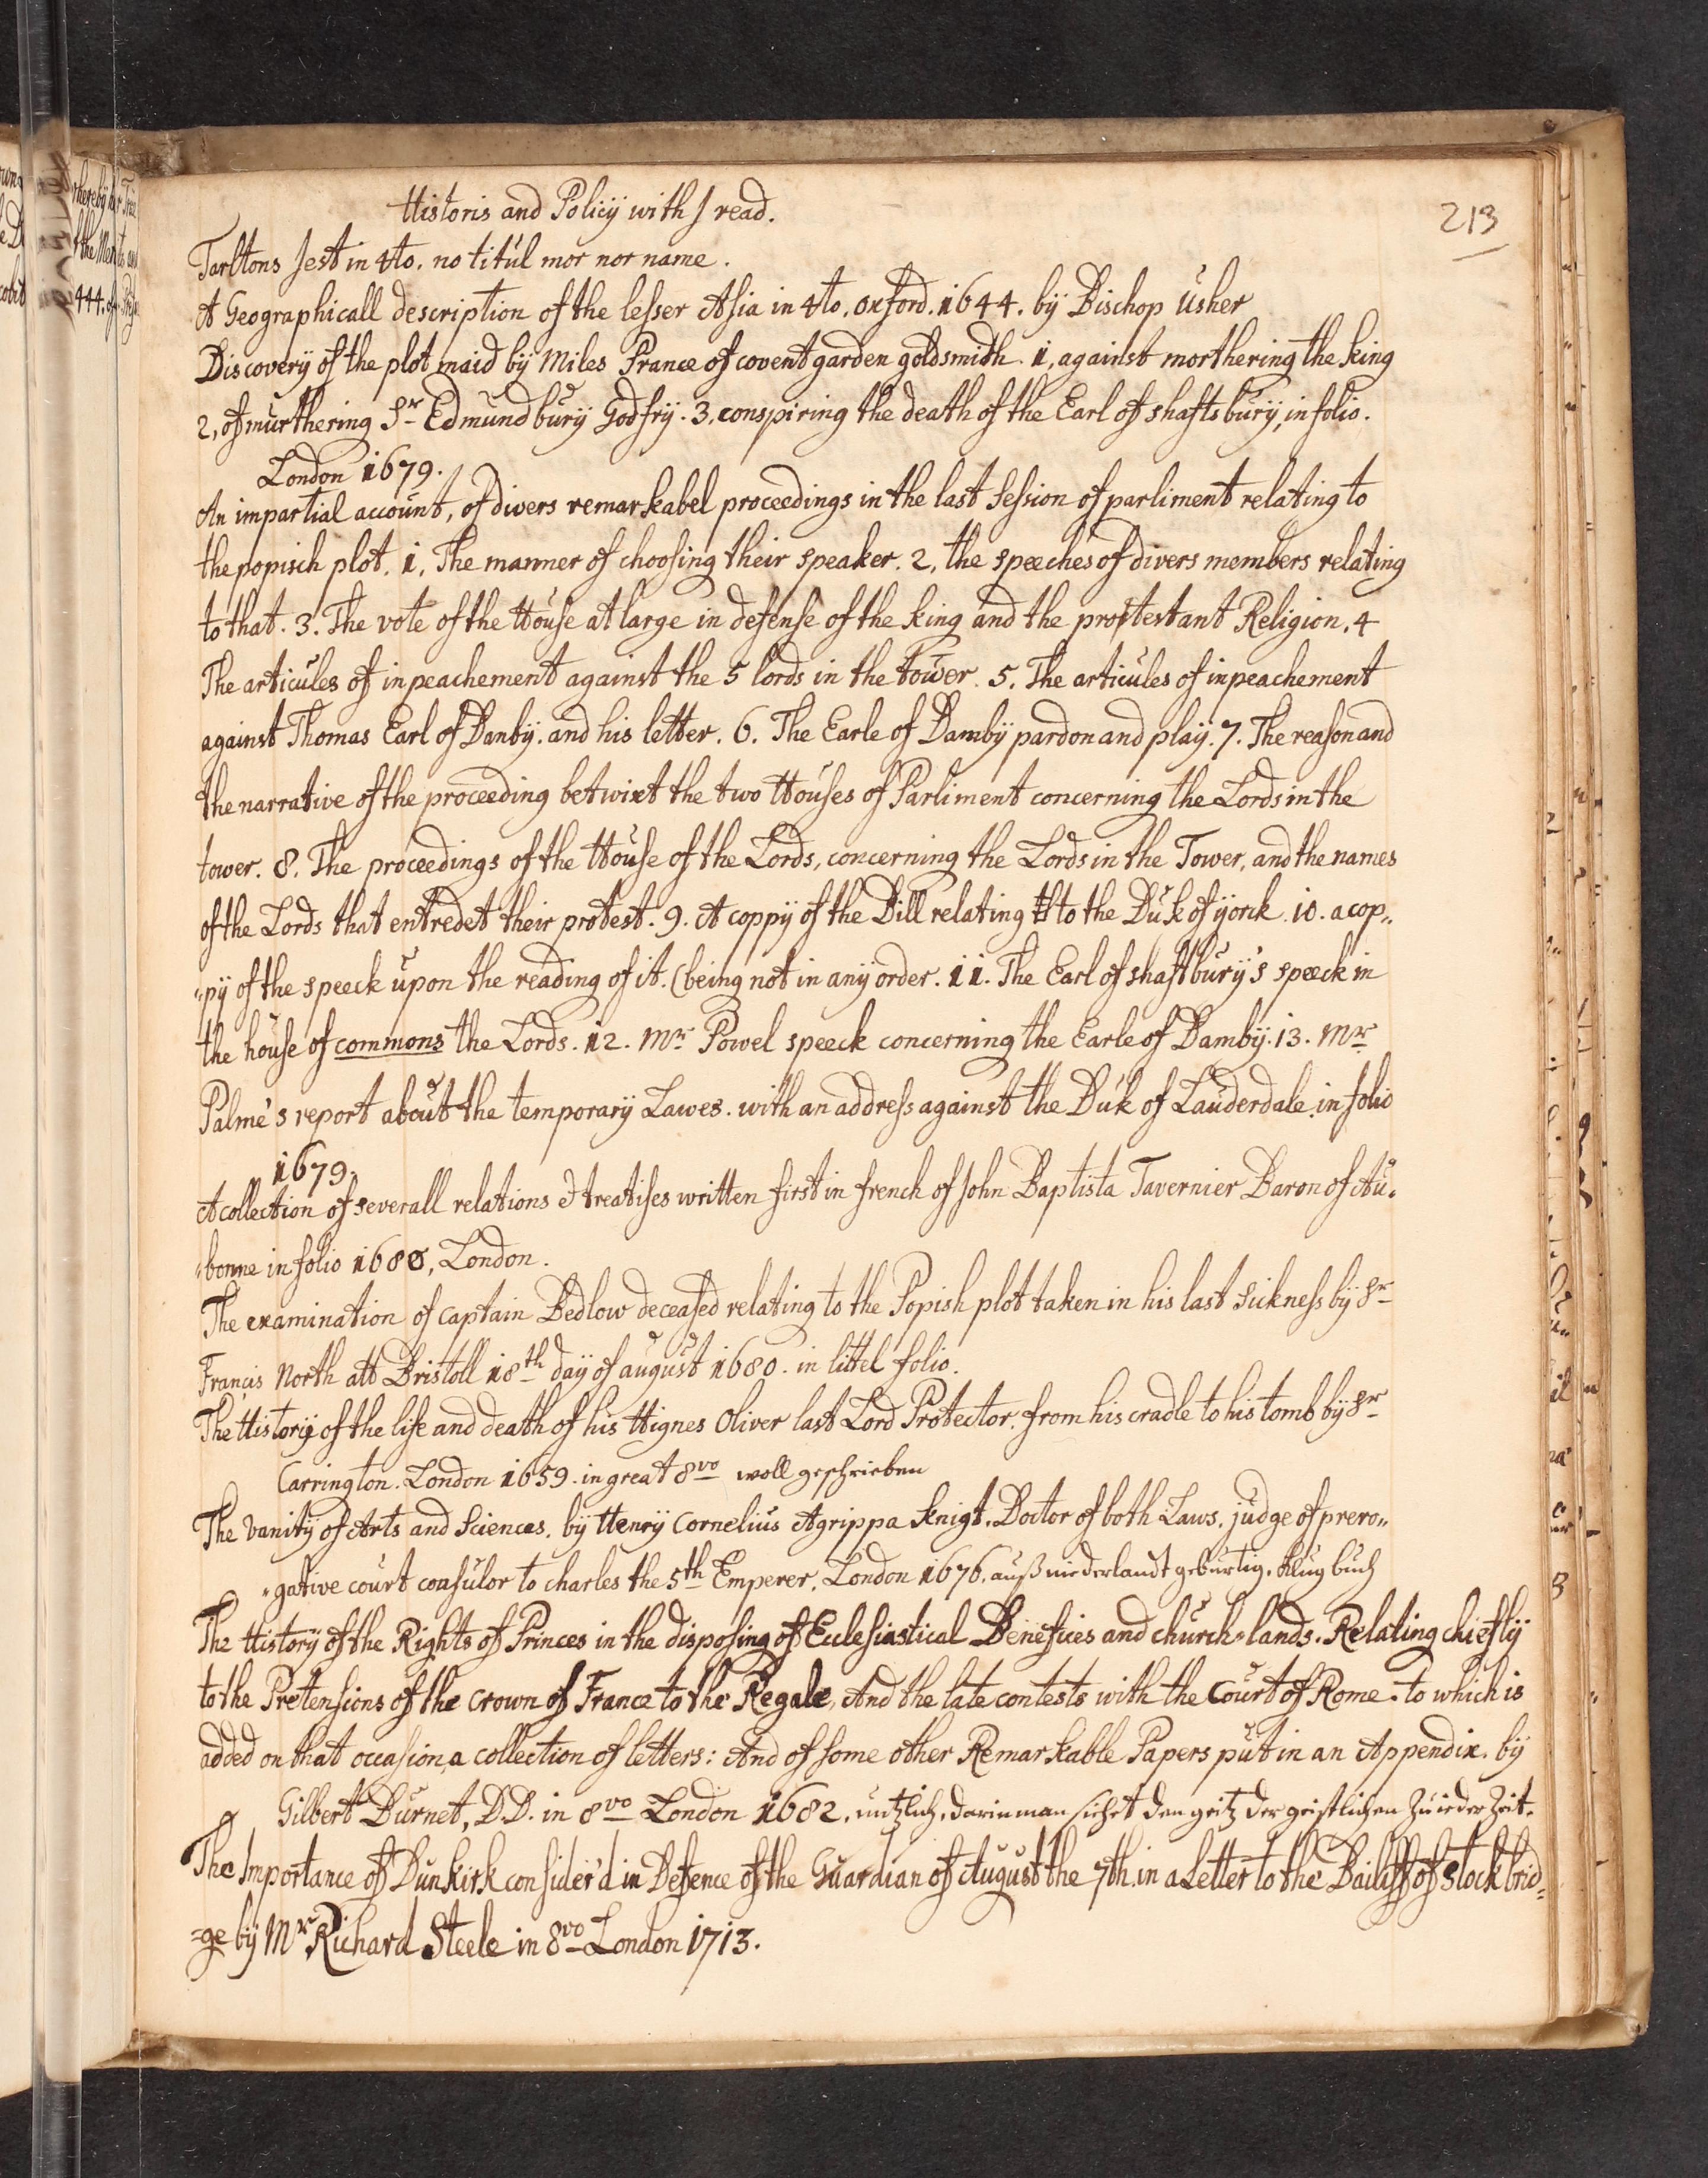 Historis and Policij with J read.
213
Tarltons Jest in 4to. no titul mor nor name.
A Geographicall description of the lesser Asia in 4to. oxford. 1644. bij Bischop Usher
Discoverij of the plot maid bij Miles Prance of covent garden goldsmidh. 1, against morthering the king
2, of murthering Sr Edmund burij Godfrij. 3. conspiring the death of the Earl of shaftsburij, in folio.
London 1679.
An impartial account, of divers remarkabel proceedings in the last Session of parliment relating to
the popisch plot. 1. The manner of choosing their speaker. 2, the speeches of divers members relating
to that. 3. The vote of the House at large in defense of the king and the protestant Religion. 4
The articules of inpeachement against the 5 lords in the tower. 5. The articules of inpeachement
against Thomas Earl of Danbij. and his letter. 6. The Earle of Dambij pardon and plaij. 7. The reason and
the narrative of the proceeding betwixt the two Houses of Parliment concerning the Lords in the
tower. 8. The proceedings of the House of the Lords, concerning the Lords in the Tower, and the names
of the Lords that entredet their protest. 9. A coppij of the Bill relating to the Duk of ijorck. 10. a cop„
„pij of the speeck upon the reading of it. (being not in anij order. 11. The Earl of shaftburij's speeck in
the house of commons the Lords. 12. Mr Powel speeck concerning the Earle of Dambij. 13. Mr
Palme's report about the temporarij Lawes. with an address against the Duk of Lauderdale. in folio
1679.
A collection of severall relations & treatises written first in french of John Baptista Tavernier Baron of Au„
„bonne in folio 1680, London.
The examination of captain Bedlow deceased relating to the Popish plot taken in his last Sickness bij Sr
Francis North att Bristoll 18th daij of august 1680. in littel folio.
The Historij of the life and death of his Hignes Oliver last Lord Protector. from his cradle to his tomb bij Sr
Carrington. London 1659. in great 8vo woll geschrieben
The vanitij of Arts and Sciences. bij Henrij Cornelius Agrippa knigt. Doctor of both Laws. judge of prero„
„gative court consulor to charles the 5th Emperer. London 1676. auß niederlandt gebürtig. klug buch
The Historij of the Rights of Princes in the disposing of Ecclesiastical Benefices and church-lands. Relating chieflij
to the Pretensions of the crown of France to the Regale, And the late contests with the Court of Rome. to which is
added on that occasion, a collection of letters: And of some other Remarkable Papers put in an Appendix. bij
Gilbert Burnet, D.D. in 8vo London 1682. nutzlich, darin man siehet den geitz der geistlichen zu ieder Zeit.
The Importance of Dunkirk consider'd in Defence of the Guardian of August the 7th. in a Letter to the Bailiff of Stockbrid=
=ge bij Mr Richard Steele in 8vo London 1713.